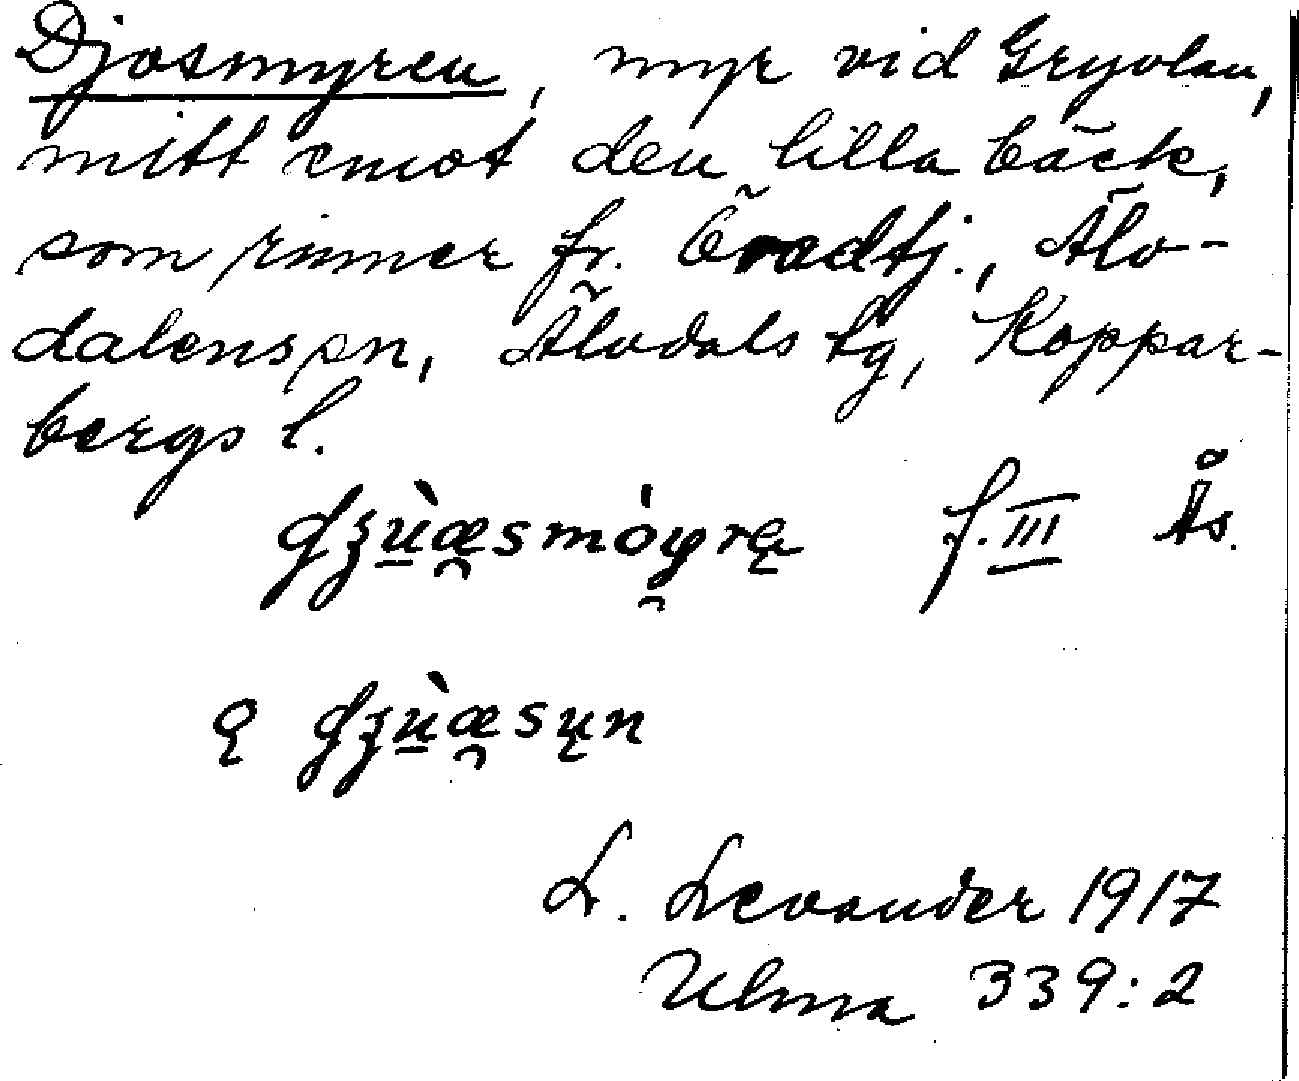 Djosmyren, myr vid Gryvlan,
mitt emot den lilla bäck,
som rinner fr. tj., Älv-
dalens sn, Älvdals tg, Koppar-
bergs l.
f. III Ås.
L. Levander 1917
Ulma 339:2